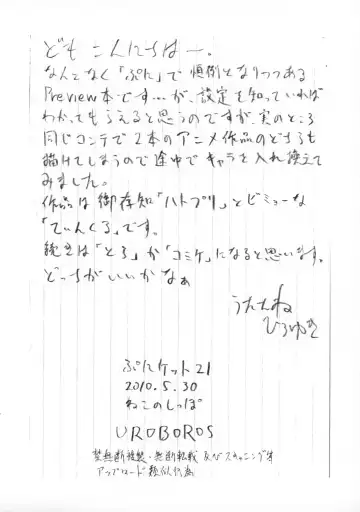 どもこんにちはー。
なんとなく「ぷに」で慣例となりつつある
Preview本です…が、設定を知っていれば
わかってもらえると思うのですが、実のところ
同じコンテで2本のアニメ作品のどちらも
描けてしまうので途中でキャラを入れ換えて
みました。
作品は御存知「ハトプリ」とビミョーな
「てぃんくる」です。
続きは「とら」か「コミケ」になると思います。
どっちがいいかなぁ
うたたね
ひろゆき
ぷにケット21
2010.5.30
ねこのしっぽ
UROBOROS
禁無断複製・無断転載及びスキャニング等
アップロード類似行為